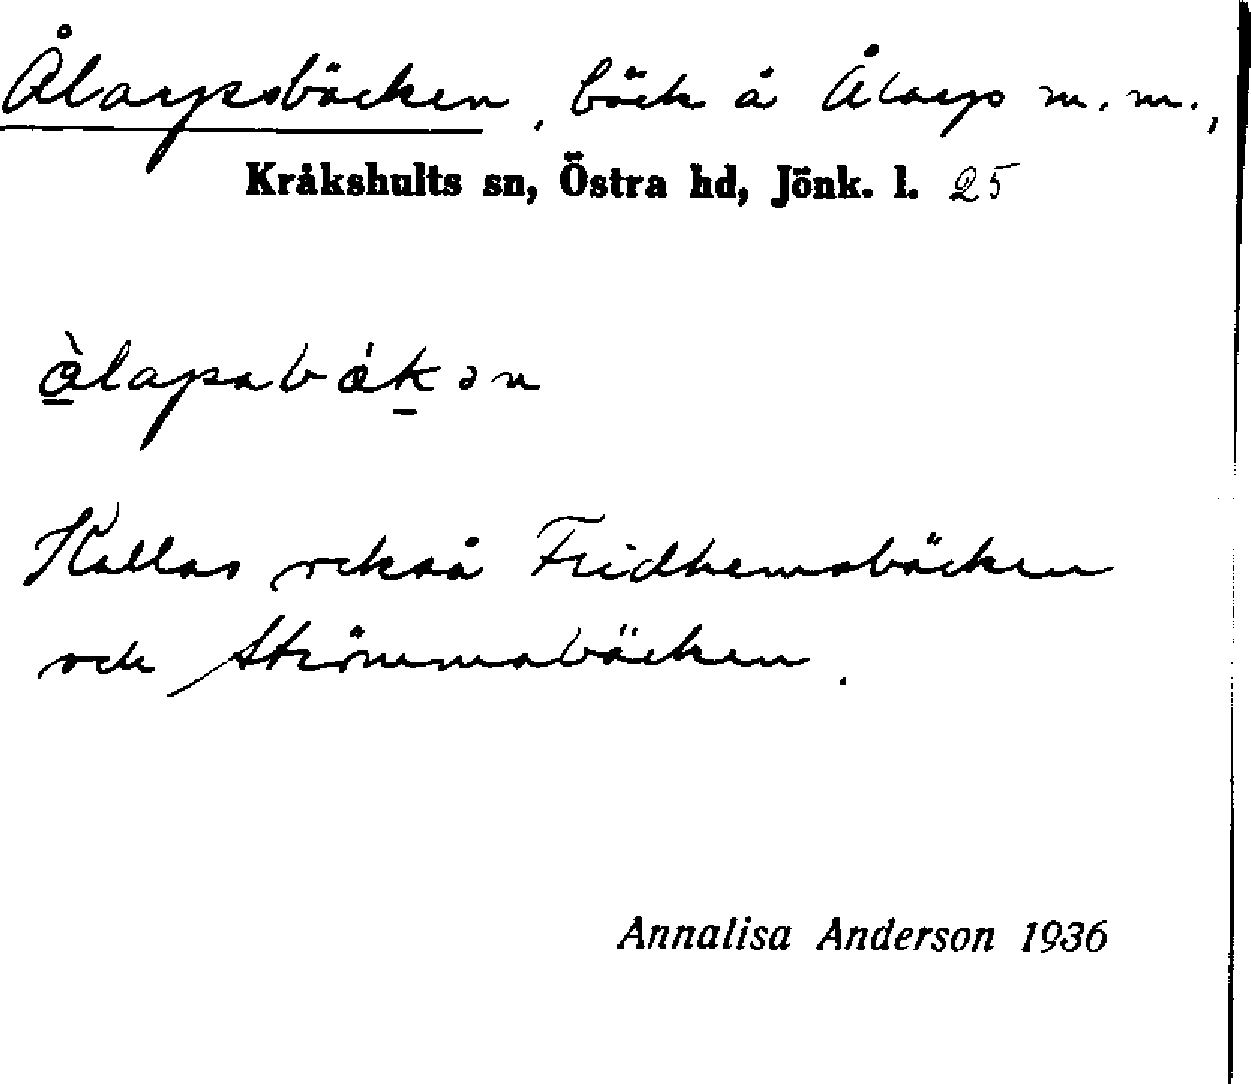 Ålarpsbäcken, bäck å Ålarp m. m.,
Kråkshults sn, Östra hd, Jönk. l. 25
å̀lapsbǽkən
Kallas också Fridhemsbäcken
och Strömmabäcken.
Annalisa Anderson 1936